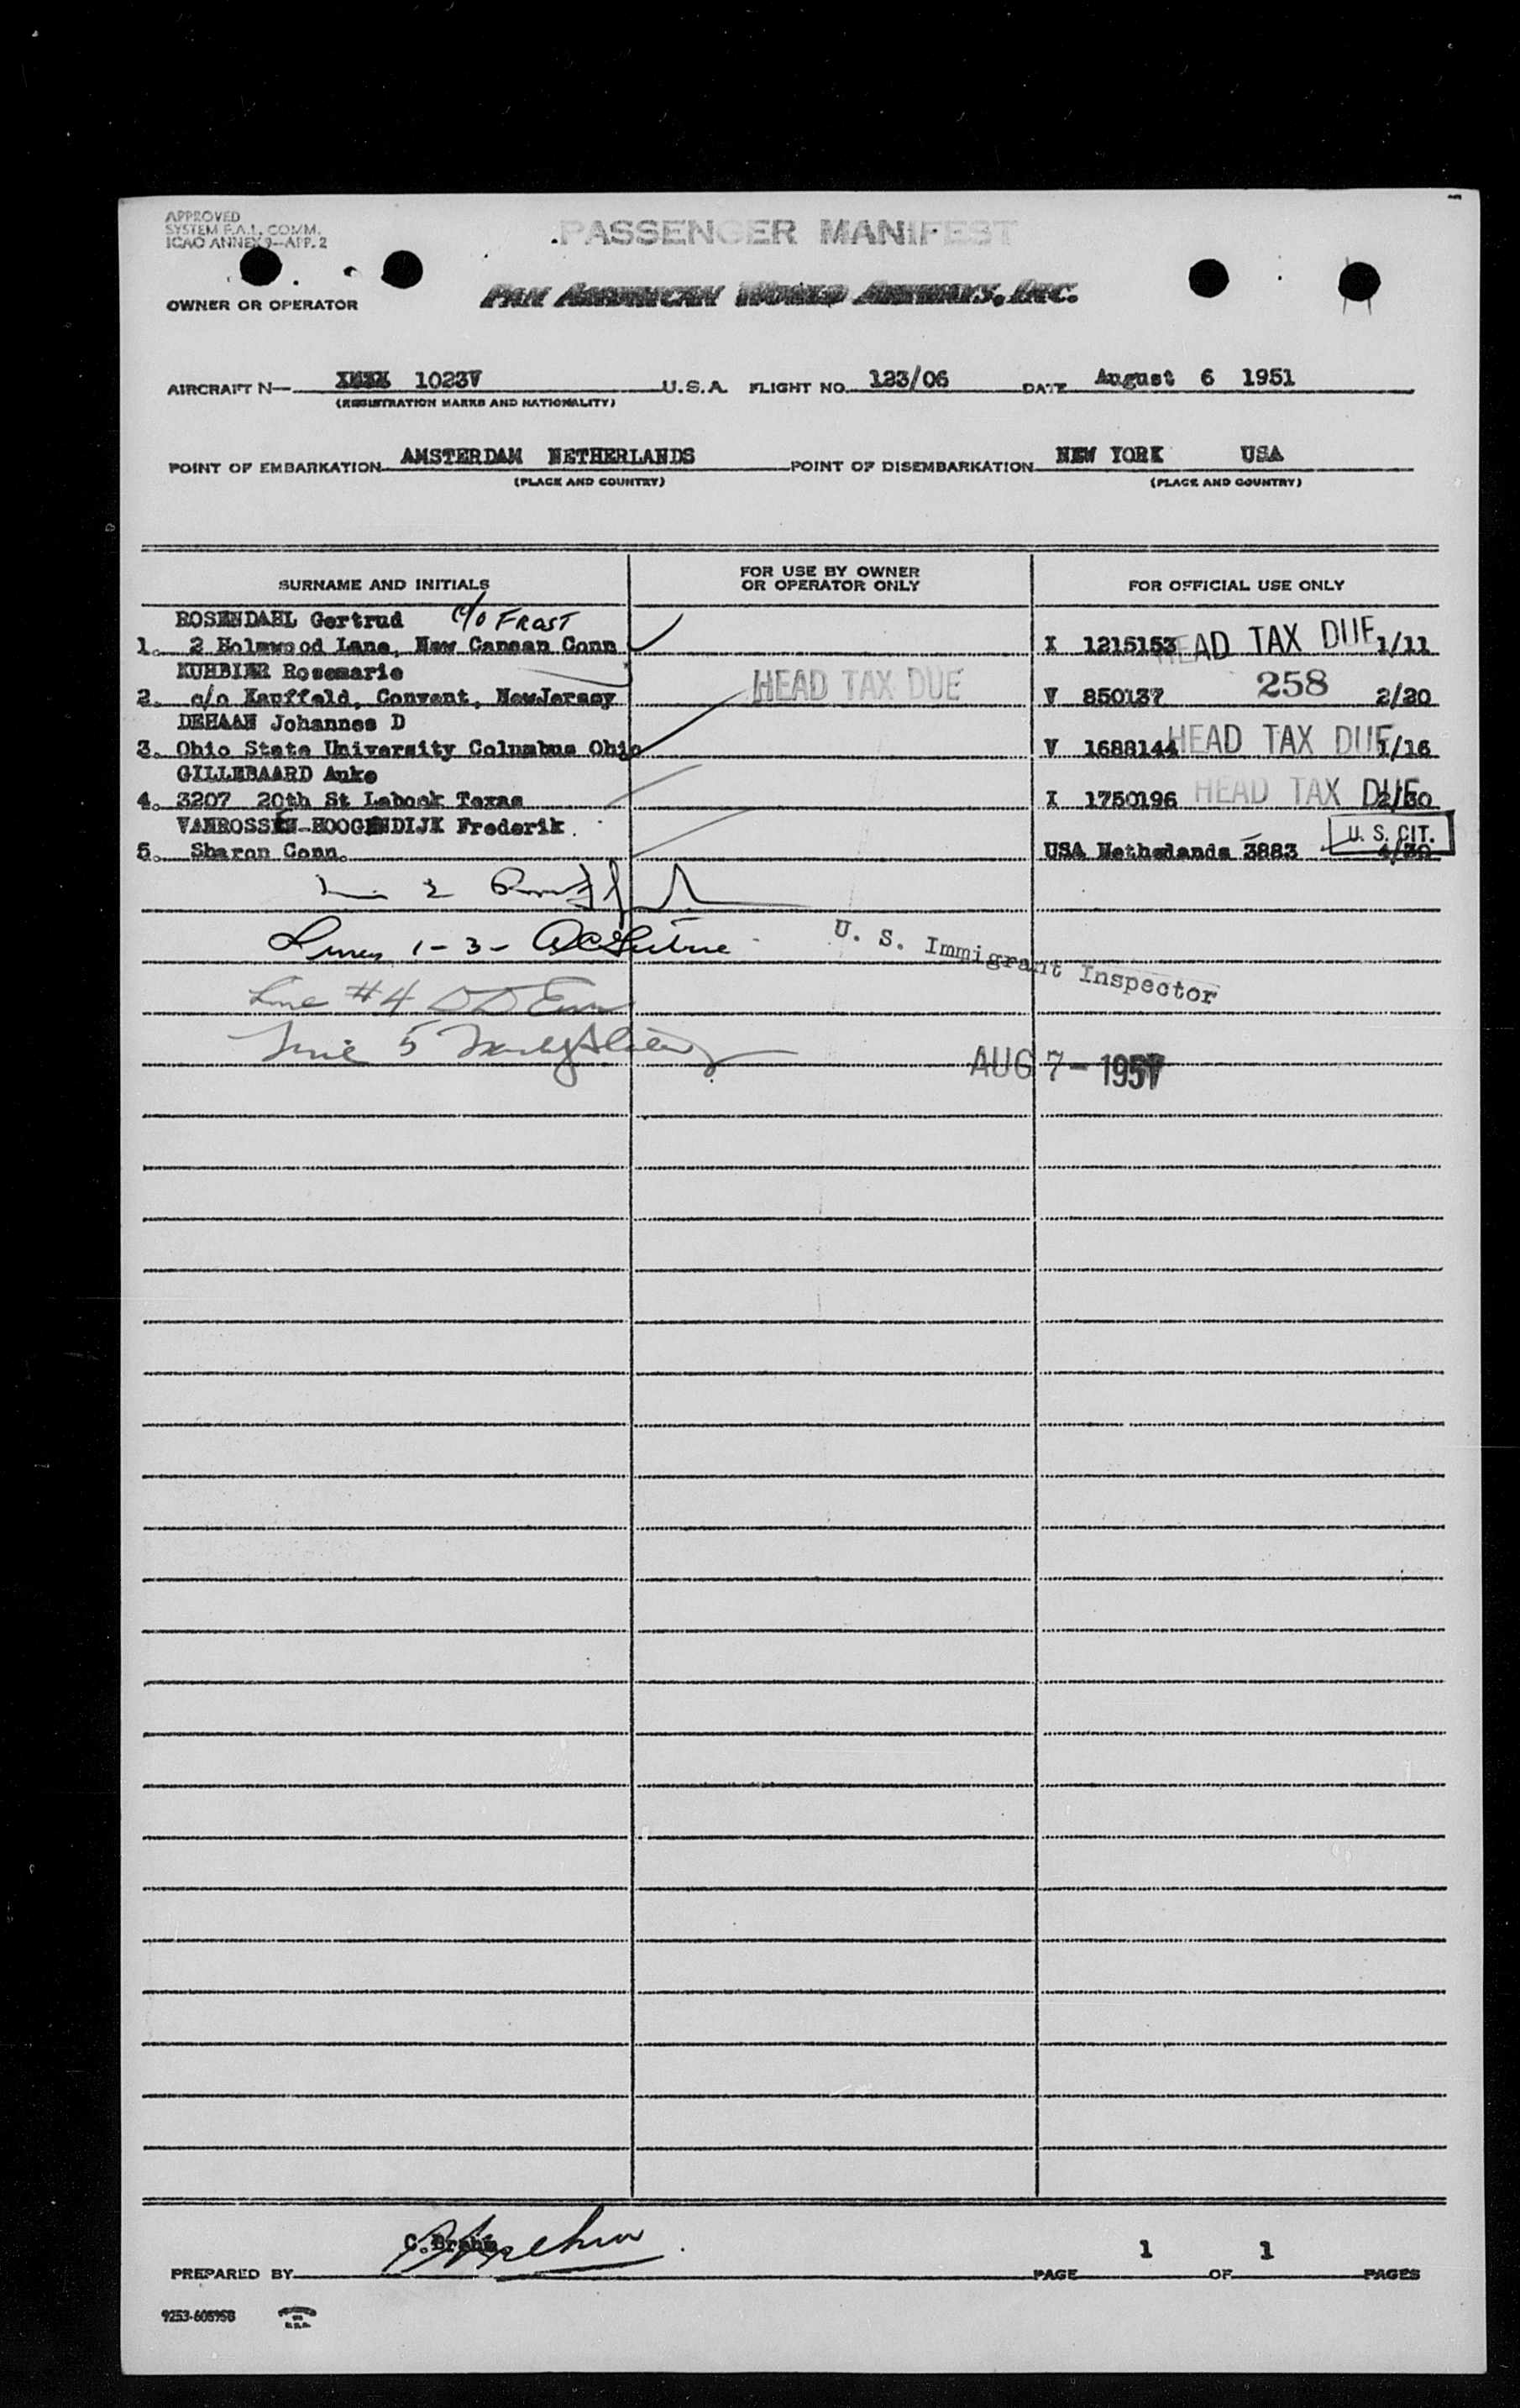 APPROVED
SYSTEM F.A.L. COMM.
ICAO ANNEX 9—APP. 2
PASSENGER MANIFEST
OWNER OR OPERATOR
PAN AMERICAN WORLD AIRWAYS, INC.
AIRCRAFT N— 1023V U.S.A. FLIGHT NO. 123/06 DATE August 6 1951
(REGISTRATION MARKS AND NATIONALITY)
POINT OF EMBARKATION AMSTERDAM NETHERLANDS POINT OF DISEMBARKATION NEW YORK USA
(PLACE AND COUNTRY) (PLACE AND COUNTRY)
SURNAME AND INITIALS FOR USE BY OWNER OR OPERATOR ONLY FOR OFFICIAL USE ONLY
ROSENDAHL Gertrud c/o FROST
1. 2 Holmwood Lane, New Canaan Conn I 1215153 HEAD TAX DUE 1/11
KUHBIER Rosemarie
2. c/o Kauffeld, Convent, NewJersey HEAD TAX DUE V 850137 258 2/20
DEHAAN Johannes D
3. Ohio State University Columbus Ohio V 1688144 HEAD TAX DUE 1/16
GILLEBAARD Anke
4. 3207 20th St Labock Texas I 1750196 HEAD TAX DUE 2/30
VANROSSEN-HOOGENDIJK Frederik
5. Sharon Conn. USA Nethelands 3883 U. S. CIT. 4/30
Lines 1-3-
U. S. Immigrant Inspector
Line #4
Line 5
AUG 7 - 1951
C.Brehm
PREPARED BY PAGE 1 OF 1 PAGES
9253-608958